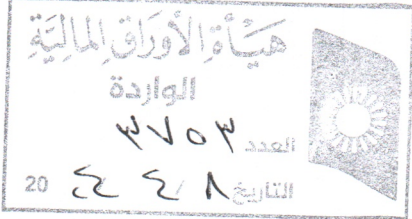 هيأة الأوراق المالية
الواردة
العدد ٣٧٥٣
التاريخ ٨ ٤ ٤ 20